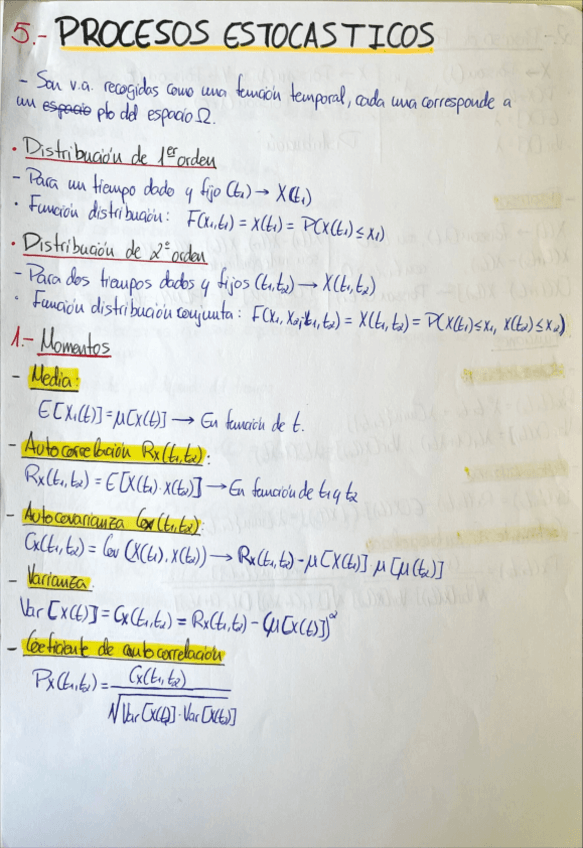 5.- PROCESOS ESTOCASTICOS
- Son v.a. recogidas como una función temporal, cada una corresponde a
un espacio pto del espacio Ω.
• Distribución de 1er orden
- Para un tiempo dado y fijo (t₁) → X(t₁)
• Función distribución: F(x₁,t₁) = X(t₁) = P(X(t₁) ≤ x₁)
• Distribución de 2º orden
- Para dos tiempos dados y fijos (t₁,t₂) → X(t₁,t₂)
• Función distribución conjunta: F(x₁,x₂;t₁,t₂) = X(t₁,t₂) = P(X(t₁)≤x₁, X(t₂)≤x₂)
1.- Momentos
- Media:
E[X₁(t)] = μ[X(t)] → En función de t.
- Autocorrelación Rx(t₁,t₂):
Rx(t₁,t₂) = E[X(t₁)·X(t₂)] → En función de t₁ y t₂
- Autocovarianza Cx(t₁,t₂):
Cx(t₁,t₂) = Cov (X(t₁),X(t₂)) → Rx(t₁,t₂) - μ[X(t₁)] μ[μ(t₂)]
- Varianza.
Var[X(t)] = Cx(t₁,t₂) = Rx(t₁,t₂) - (μ[X(t)])²
- Coeficiente de autocorrelación
Px(t₁,t₂) = Cx(t₁,t₂)
√Var[X(t₁)]·Var[X(t₂)]